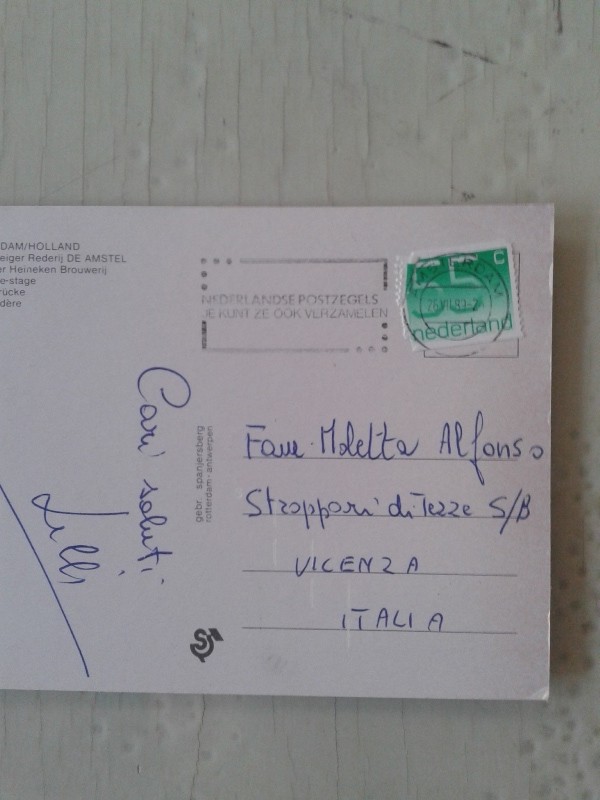 DAM/HOLLAND
eiger Rederij DE AMSTEL
er Heineken Brouwerij
e-stage
rücke
dère
NEDERLANDSE POSTZEGELS
JE KUNT ZE OOK VERZAMELEN
AMSTERDAM
55 C
nederland
Cari saluti
Lilli
gebr. spanjersberg
rotterdam - antwerpen
Fam. Moletta Alfonso
Stroppari di Tezze S/B
VICENZA
ITALIA